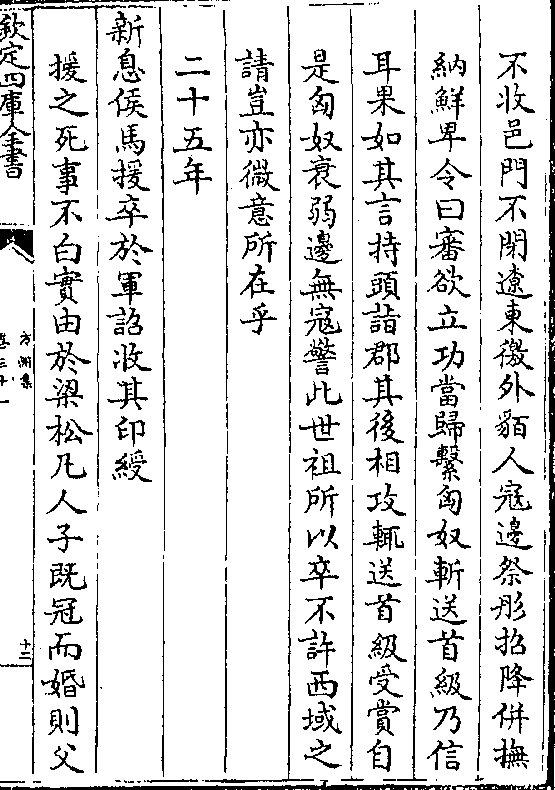 不收邑門不閉遼東徼外貊人寇邊祭彤招降併撫
納鮮卑令曰審欲立功當歸繫匈奴斬送首級乃信
耳果如其言持頭詣郡其後相攻輒送首級受賞自
是匈奴衰弱邊無寇警此世祖所以卒不許西域之
請豈亦微意所在乎
二十五年
新息侯馬援卒於軍詔收其印綬
援之死事不白實由於梁松凡人子既冠而婚則父
欽定四庫全書
方洲集
卷三十一
十三